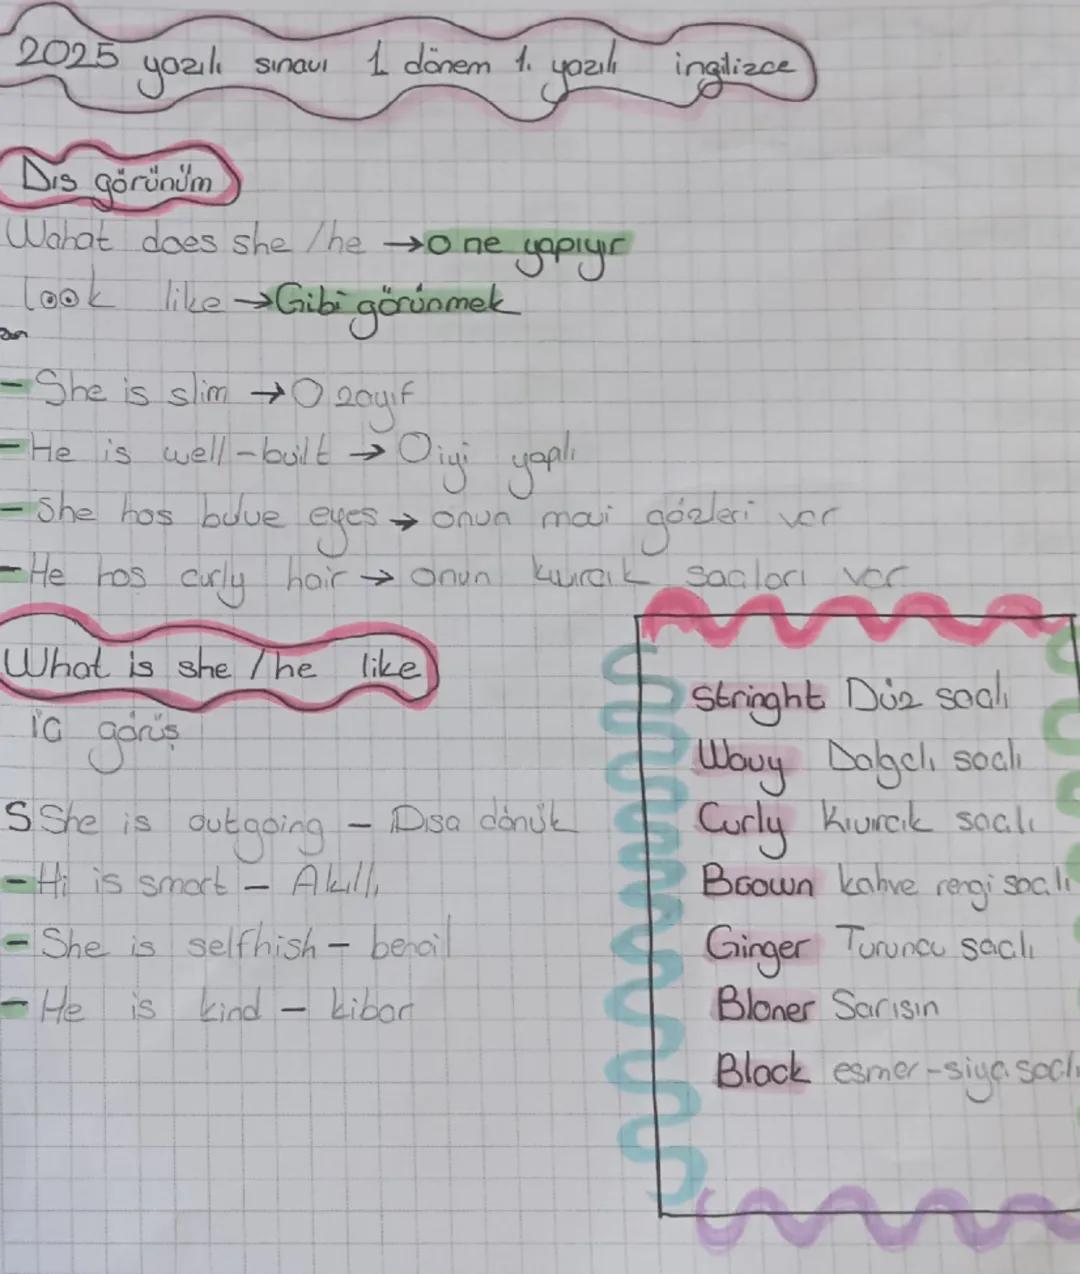 2025 yazılı sınavı 1 dönem 1. yazılı ingilizce
Dıs görünüm
Wahat does she /he → o ne yapıyır
look like → Gibi görünmek
- She is slim → O zayıf
- He is well-built → O iyi yapılı
- She has bulue eyes → onun mavi gözleri var
- He has curly hair → onun kıvırcık saçları var
What is she /he like
iç görüş
S She is outgoing - Dısa dönük
- Hi is smart - Akıllı
- She is selfhish - bencil
- He is kind - kibar
Stringht Düz saçlı
Wavy Dalgalı saçlı
Curly Kıvırcık saçlı
Brown kahve rengi saçlı
Ginger Turuncu saçlı
Bloner Sarısın
Black esmer-siya saçlı